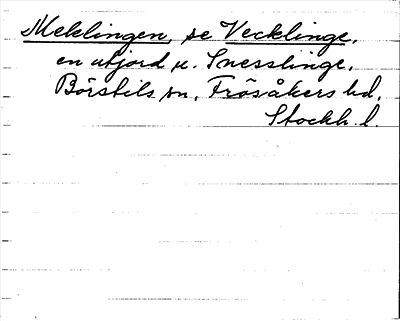 Meklingen, se Vecklinge,
en utjord u. Snesslinge,
Börstils sn, Frösåkers hd,
Stockh. l